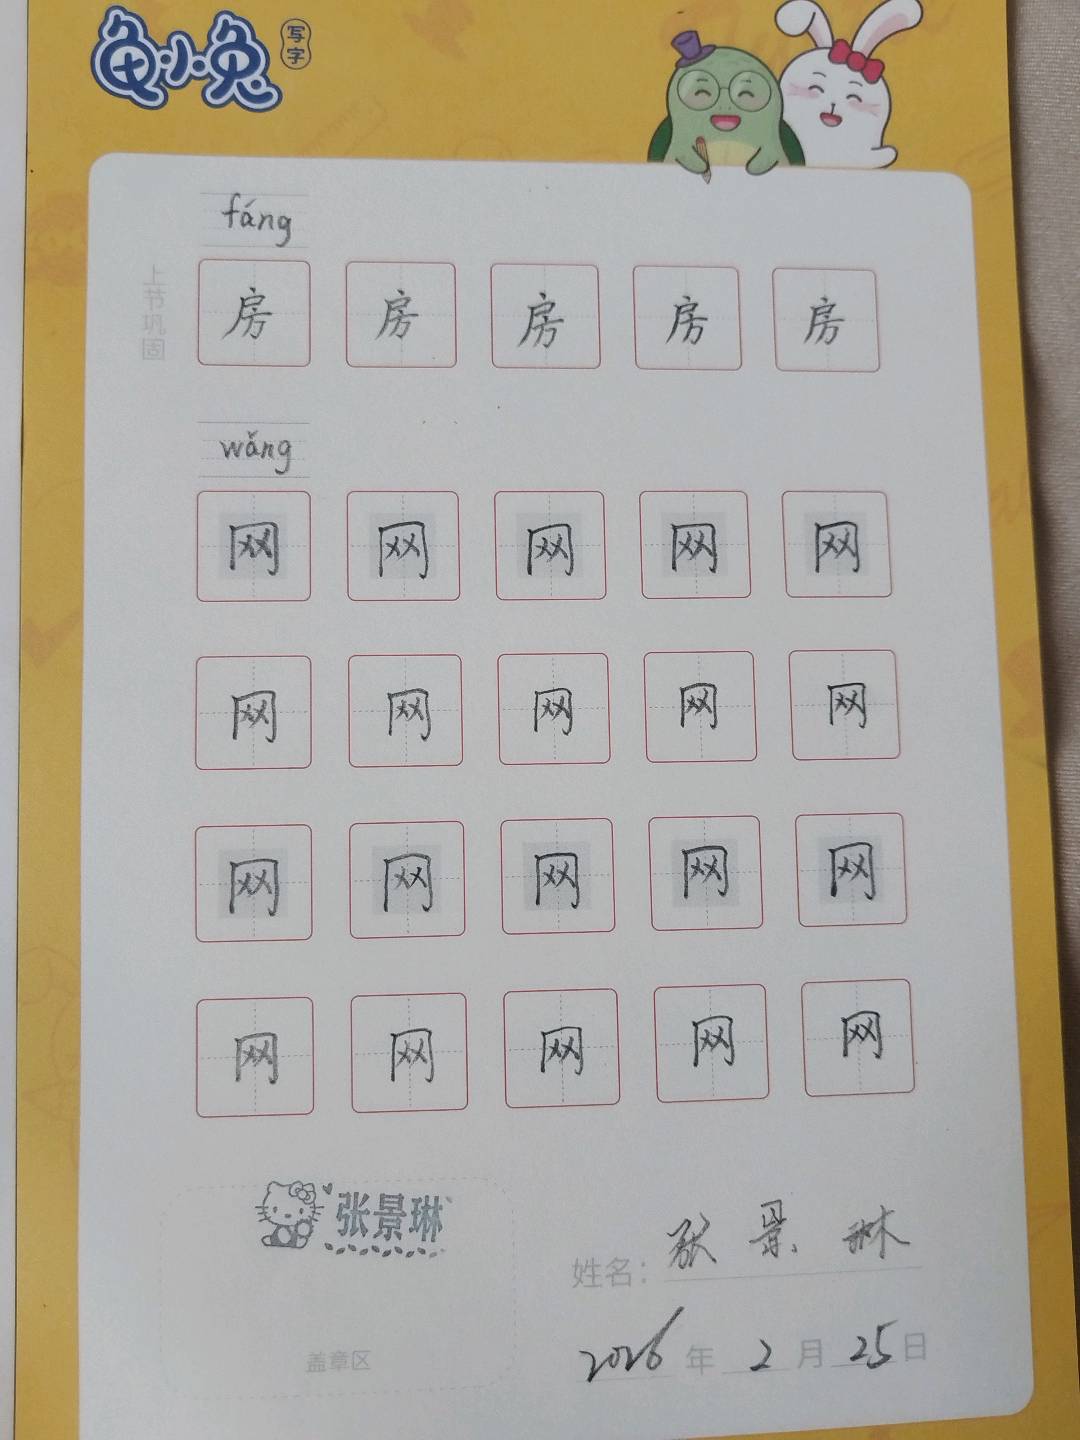 龟小兔 写字
fáng
上节巩固
房 房 房 房 房
wǎng
网 网 网 网 网
网 网 网 网 网
网 网 网 网 网
网 网 网 网 网
张景琳
姓名：张景琳
盖章区
2026年2月25日